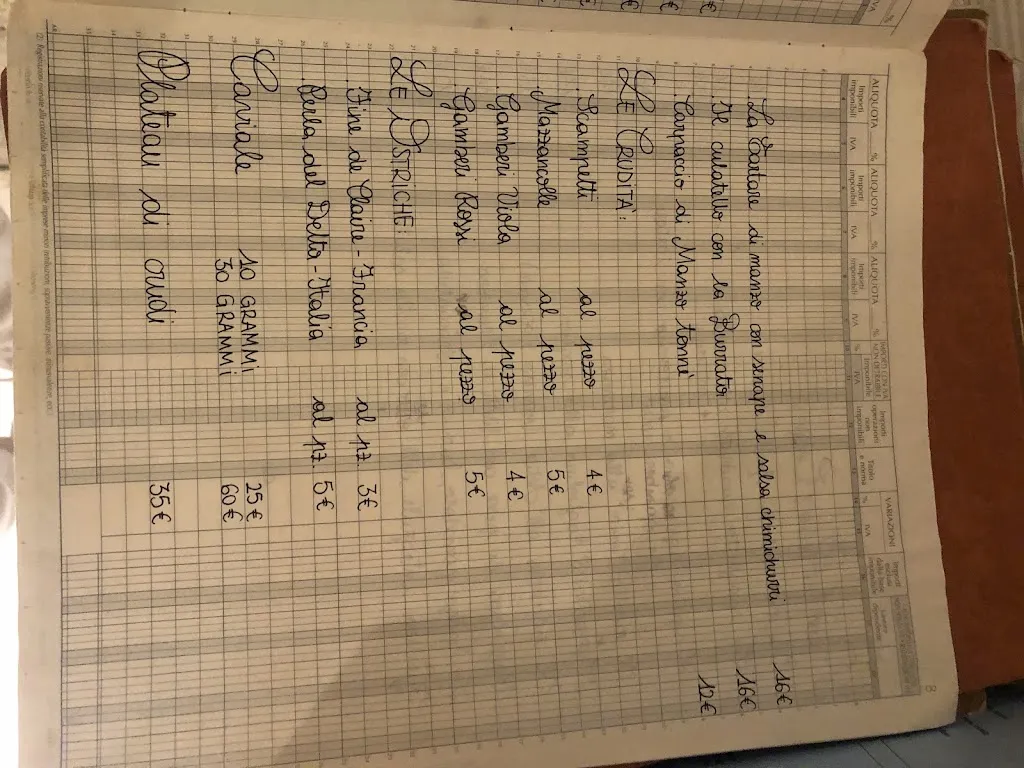 8
ALIQUOTA %
ALIQUOTA %
ALIQUOTA %
VARIAZIONI
Importi imponibili IVA
Importi imponibili IVA
Importi imponibili IVA
% IVA
Importi operazioni non imponibili
Titolo e norma
% IVA
La Tartare di manzo con senape e salsa chimichurri 16€
Il culatello con la Burrata 16€
Carpaccio di Manzo tonné 12€
LE CRUDITÀ:
Scampetti al pezzo 4€
Mazzancolle al pezzo 5€
Gamberi Viola al pezzo 4€
Gamberi Rossi al pezzo 5€
LE OSTRICHE:
Fine de Claire - Francia al pz. 3€
Perla del Delta - Italia al pz. 5€
Caviale 10 GRAMMI 25€
30 GRAMMI 60€
Plateau di crudi 35€